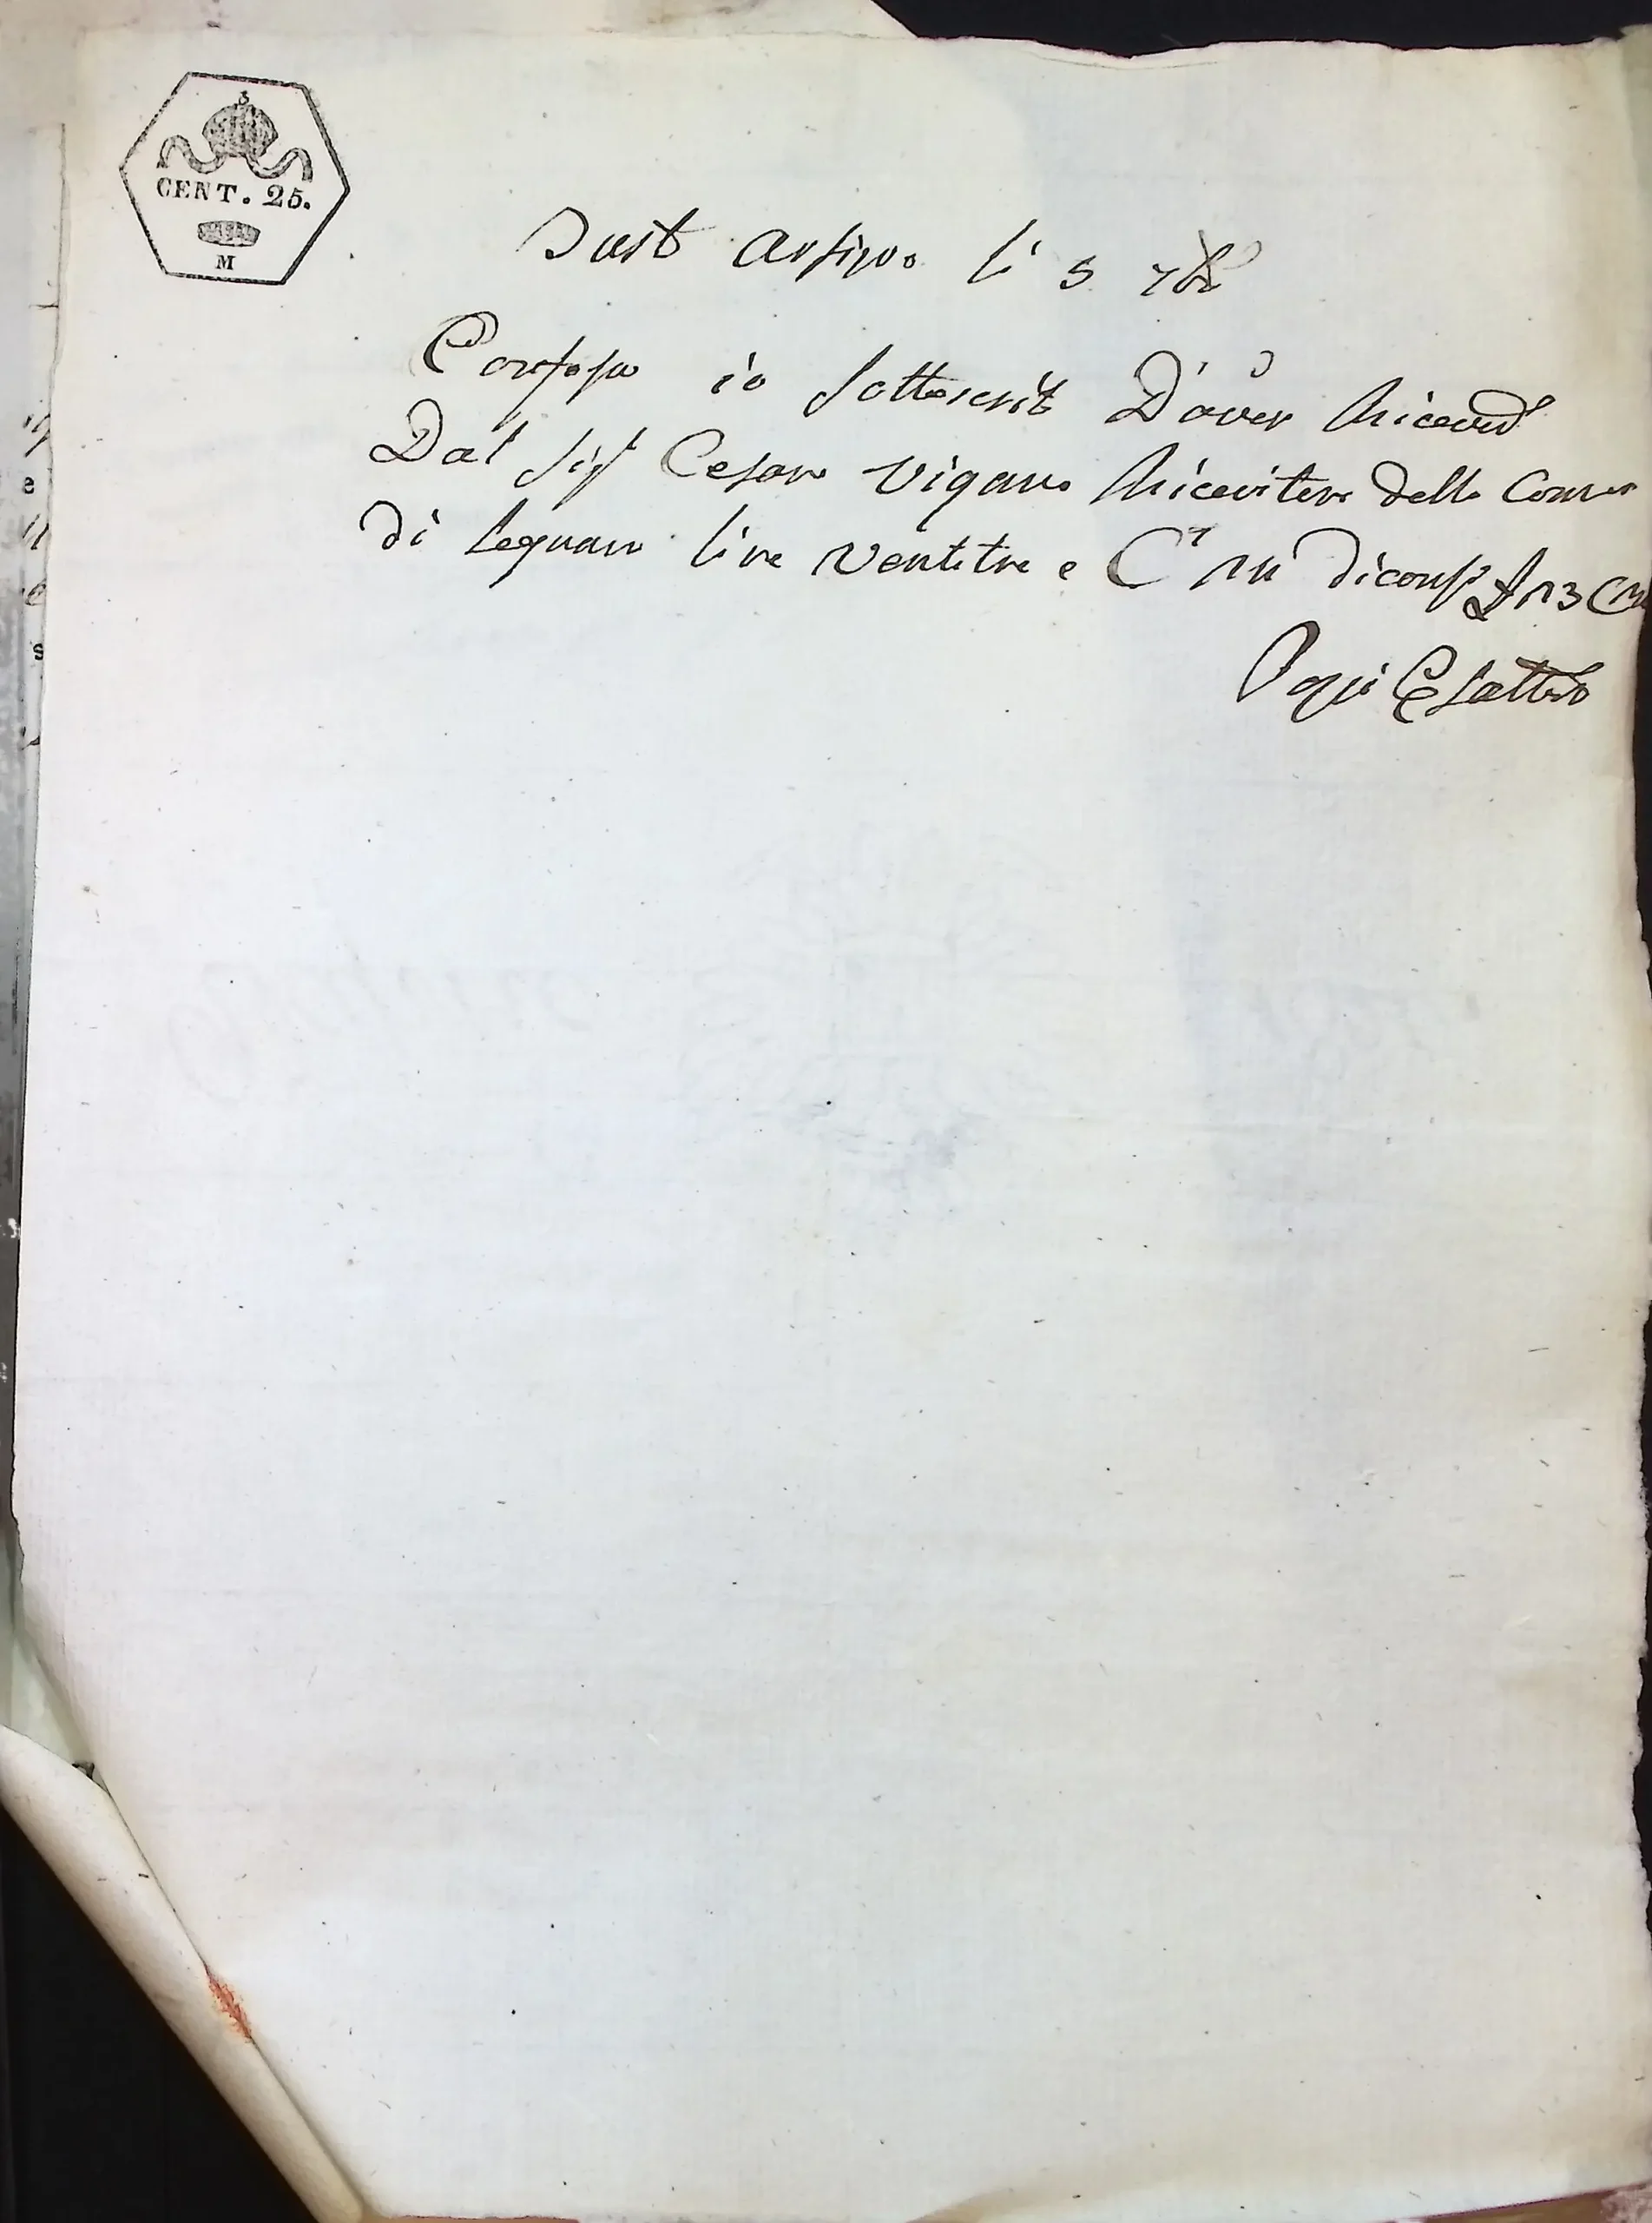 CENT. 25.
M
Bust Arsizo li 5 7bre
Confesso io sottoscrit D'aver Ricevut
Dal Sigr Cesare Vigano Ricevitore della Comun
di Legnano lire Ventitre e Cmi diconsi
Esattore